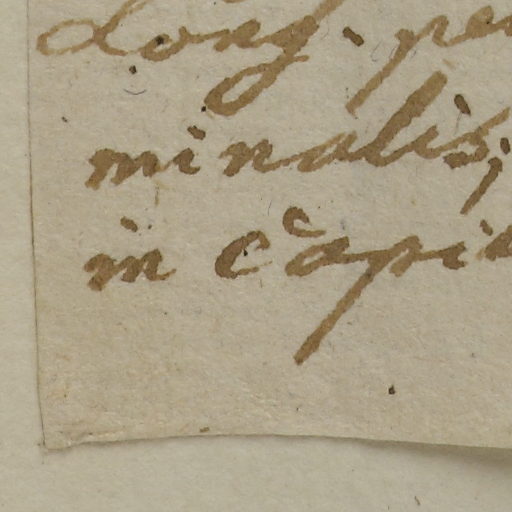 Long. pe
minalis;
in capi